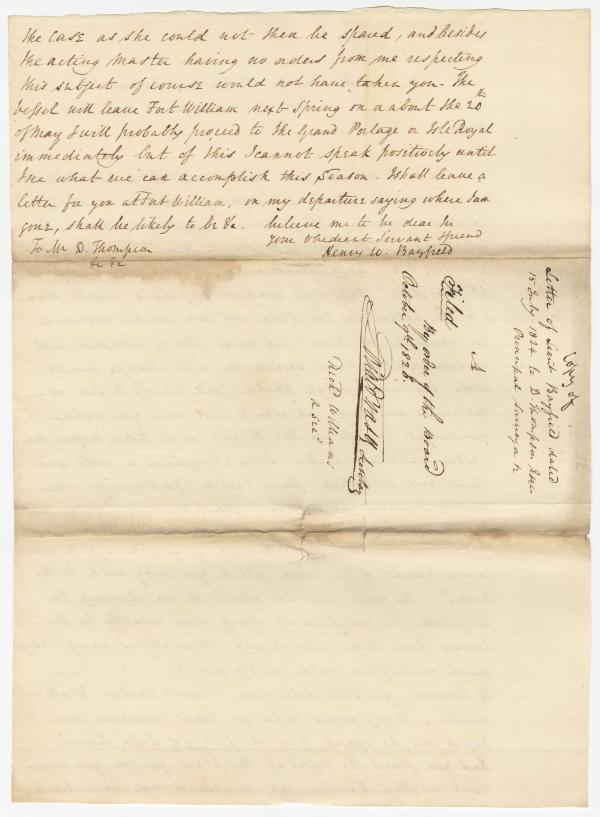 the case as she could not then be spared, and besides
the acting Master having no orders from me respecting
this subject of course would not have taken you. The
Vessel will leave Fort William next Spring on or about the 20th
of May & will probably proceed to the Grand Portage or Isle Royal
immediately but of this I cannot speak positively until
I see, what we can accomplish this Season. I shall leave a
letter for you at Fort William, on my departure saying where I am
gone, & shall be likely to be &c. believe me to be dear Sir
Your Obedient Servant & friend
To Mr D. Thompson Henry W. Bayfield
&c &c
Copy of
Letter of Lieut Bayfield dated
15 July 1824 to D Thompson Esqr
Principal Surveyor &c
A
Filed By order of the Board
October 9th 1826.
Secretary
Richd Williams